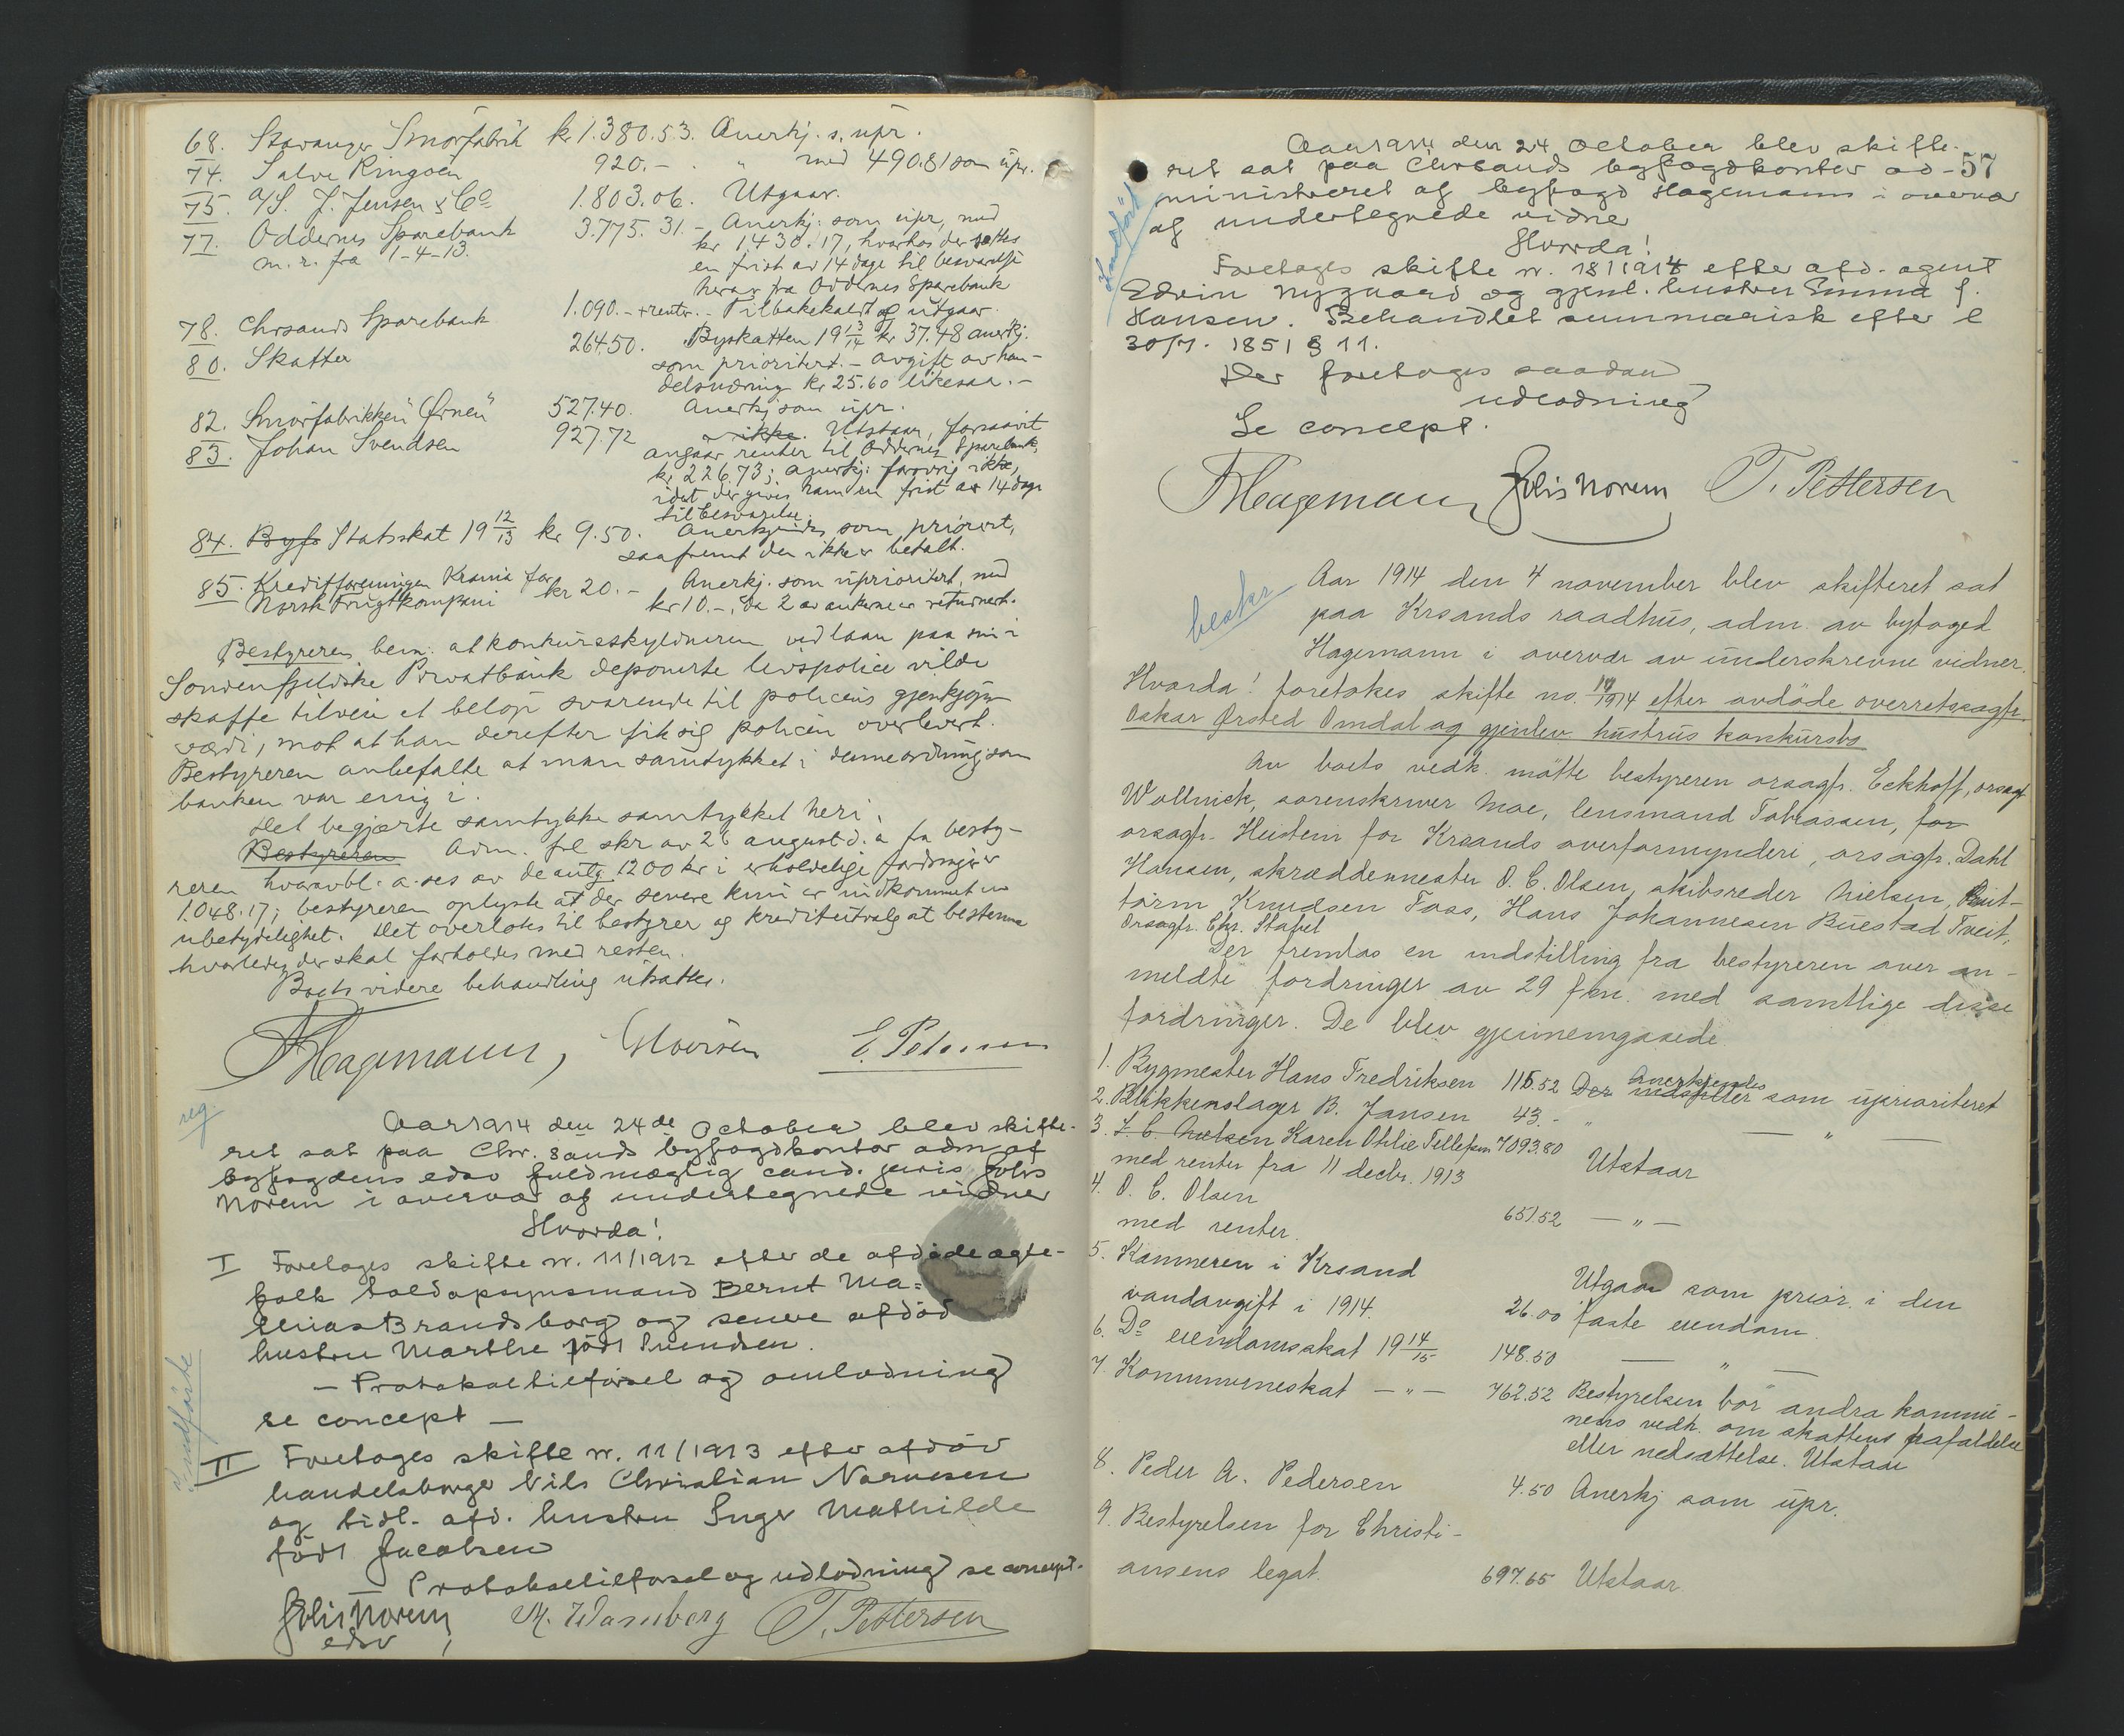 68. Stavanger Smörfabrik kr. 1.380.53. Anerkj. s. upr.
74. Salve Ringöen 920.- " med 490.81 som upr.
75. A/S. J. Jensen & Co 1.803.06. Utgaar.
77. Oddernes Sparebank 3.775.31.- Anerkj. som upr, med
m. r. fra 1-4-13. kr 1430.17, hvorhos der sættes
en frist av 14 dage til besvarelse
herav fra Oddernes Sparebank
78. Chrsands Sparebank 1.090.- + renter.- Tilbakekaldt og utgaar.
80. Skatter 264.50. Byskatten 19 13/14 kr. 37.48 anerkj.
som prioritert.- avgift av han-
delsnæring kr 25.60 likesaa.-
82. Smörfabrikken "Ørnen" 527.40. Anerkj som upr.
83. Johan Svendsen 927.72 ikke. Utstaar, forsaavit
angaar renter til Oddernes Sparebank,
kr 226.73; anerkj. forövrig ikke,
idet der gives ham en frist av 14 dage
til besvarelse.
84. Byfs Statsskat 19 12/13 kr 9.50. Anerkjendes som priorert,
saafremt den ikke er betalt.
85. Kreditforeningen Krania for kr 20.- Anerkj. som uprioritert, med
Norsk Frugtkompani kr 10.-, da 2 av ankerne er returnert.
Bestyreren bem. at konkursskyldneren ved laan paa sin i
Söndenfjeldske Privatbank deponerte livspolice vilde
skaffe tilveie et belöp svarende til policens gjenkjøps-
værdi, mot at han derefter fik sig policen overlevert.
Bestyreren anbefalte at man samtykket i denne ordning som
banken var enig i.
Det begjærte samtykke samtykket heri.
Bestyreren Adm. frl skr av 26 august d. a fra besty-
reren hvoravbl. a. ses av de antg 1200 kr i erholdelige fordringer er
1.048.17; bestyreren oplyste at der senere kun er indkommet en
ubetydelighet. Det overlotes til bestyrer og kreditutvalg at bestemme
hvorledes der skal forholdes med resten.
Boets videre behandling utsattes.
FHagemann, E. Petersen
reg.
Aar 1914 den 24de October blev skifte-
ret sat paa Chr.sands byfogdkontor adm af
byfogdens edsv fuldmægtig cand. juris Jolis
Norem i overvær af undertegnede vidner
Hvorda!
I Foretoges skifte nr. 11/1912 efter de afdöde ægte-
folk toldopsynsmand Bernt Ma-
thias Brandsborg og senere afdöd
hustru Marthe född Svendsen.
- Protokoltilförsel og omlodning
se concept -
Indförte
II Foretoges skifte nr. 11/1913 efter afdöd
handelsborger Nils Christian Narvesen
og tidl. afd. hustru Inger Mathilde
född Jacobsen
Protokoltilförsel og udlodning se concept.
Jolis Norem M. Wamberg T. Pettersen
edsv
57
Aar 1914 den 24 October blev skifte-
ret sat paa Chrsands byfogdkontor ad-
ministreret af byfogd Hagemann i overvær
af undertegnede vidner
Hvorda!
Indfört
Foretoges skifte nr. 18/1914 efter afd. agent
Edvin Nygaard og gjenl. hustru Emma f.
Hansen. Behandlet summarisk efter l
30/7. 1851 § 11.
Der foretoges saadan
udlodning
Se concept.
FHagemann Jolis Norem T. Pettersen
beskr
Aar 1914 den 4 november blev skifteret sat
paa Krsands raadhus, adm. av byfoged
Hagemann i overvær av underskrevne vidner.
Hvorda! foretokes skifte no. 14/1914 efter avdöde overretssagfr.
Oskar Ørsted Omdal og gjenlev. hustrus konkursbo
Av boets vedk. mötte bestyreren orsagfr. Eckhoff, orsagf
Wollnick, sorenskriver Moe, lensmand Tobiassen, for
orsagfr. Heistein for Krsands overformynderi, orsagfr. Dahl
Hansen, skræddermester O. C. Olsen, skibsreder Nielsen, Ruit-
torm Knudsen Foss, Hans Johannesen Buestad Tveit,
Orsagfr. Chr. Stabel
Der fremlas en indstilling fra bestyreren over an-
meldte fordringer av 29 f.m. med samtlige disse
fordringer. De blev gjennemgaaede.
1. Bygmester Hans Fredriksen 115.52 Der indstiller Anerkjendes som uprioriteret
2. Blikkenslager B. Jansen 43.- " — " —
3. J. C. Nielsen Karen Othlie Tellefsen 7093.80
med renter fra 11 decbr. 1913 Utstaar
4. O. C. Olsen
med renter. 651.52 — " —
5. Kæmneren i Krsand
vandavgift i 1914. 26.00 Utgaar som prior. i den
faste eiendom.
6. Do eiendomsskat 19 14/15 148.50 — " —
7. Kommuneskat — " — 762.52 Bestyrelsen bör andra kommu-
nens vedk. om skattens frafaldelse
eller nedsættelse. Utstaar
8. Peder A. Pedersen 4.50 Anerkj som upr.
9. Bestyrelsen for Christi-
ansens legat. 697.65 Utstaar